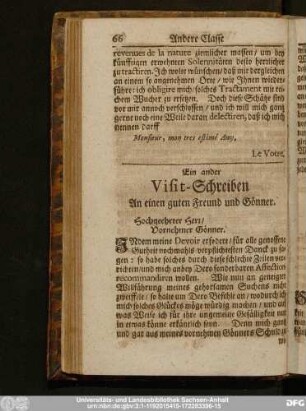 66 Andere Classe
revenues de la nature ziemlicher massen / um bey
fünfftagen erwehnten Solennitäten desto herrlicher
zu tractiren. Ich wolte wünschen / daß mir dergleichen
an einem so angenehmen Orte / wie Ihnen wieder-
führe: ich obligire mich solches Tractament mit rei-
chem Wucher zu ersetzen. Doch diese Schätze sind
vor mir annoch verschlossen / und ich will mich gantz
gerne noch eine Weile daran delectiren, daß ich mich
nennen darff
Monsieur, mon tres estimé Amy,
Le Votre.
Ein ander
Visit-Schreiben
An einen guten Freund und Gönner.
Hochgeehrter Herr /
Vornehmer Gönner.
INdem meine Devoir erfodert / für alle genossen
Gutheit nochmahls verpflichtesten Danck zu sa-
gen: so habe solches durch diese schlechte Zeilen ver-
richten / und mich anbey Dero sonderbaren Affection
recommandiren wollen. Wie nun an geneigter
Willfahrung meines gehorsamen Suchens nicht
zweiffle: so halte um Dero Befehle an / wodurch ich
mich solches Glückes möge würdig machen / und auf
was Weise ich für ihre ungemeine Gefälligkeit nur
in etwas könne erkäntlich seyn. Denn mich gantz
und gar aus meines vornehmen Gönners Schuld zu
Universitäts- und Landesbibliothek Sachsen-Anhalt
urn:nbn:de:gbv:3:1-1192015415-172283396-15
DFG